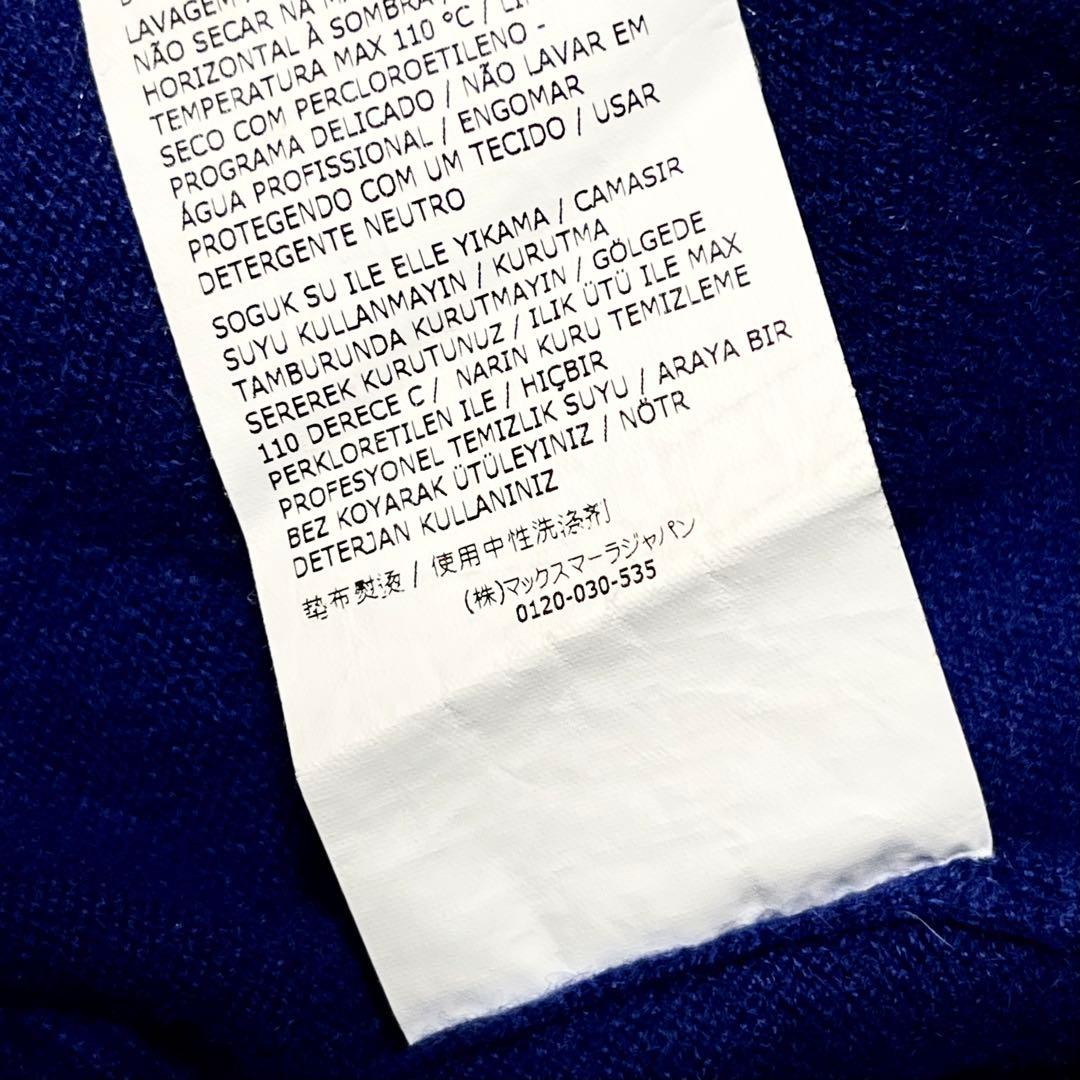 LAVAGEM
NÃO SECAR NA
HORIZONTAL À SOMBRA
TEMPERATURA MAX 110 °C /
SECO COM PERCLOROETILENO -
PROGRAMA DELICADO / NÃO LAVAR EM
ÁGUA PROFISSIONAL / ENGOMAR
PROTEGENDO COM UM TECIDO / USAR
DETERGENTE NEUTRO
SOGUK SU ILE ELLE YIKAMA / CAMASIR
SUYU KULLANMAYIN / KURUTMA
TAMBURUNDA KURUTMAYIN / GÖLGEDE
SEREREK KURUTUNUZ / ILIK ÜTÜ ILE MAX
110 DERECE C / NARIN KURU TEMIZLEME
PERKLORETILEN ILE / HIÇBIR
PROFESYONEL TEMIZLIK SUYU / ARAYA BIR
BEZ KOYARAK ÜTÜLEYINIZ / NÖTR
DETERJAN KULLANINIZ
垫布熨烫 / 使用中性洗涤剂
(株)マックスマーラジャパン
0120-030-535